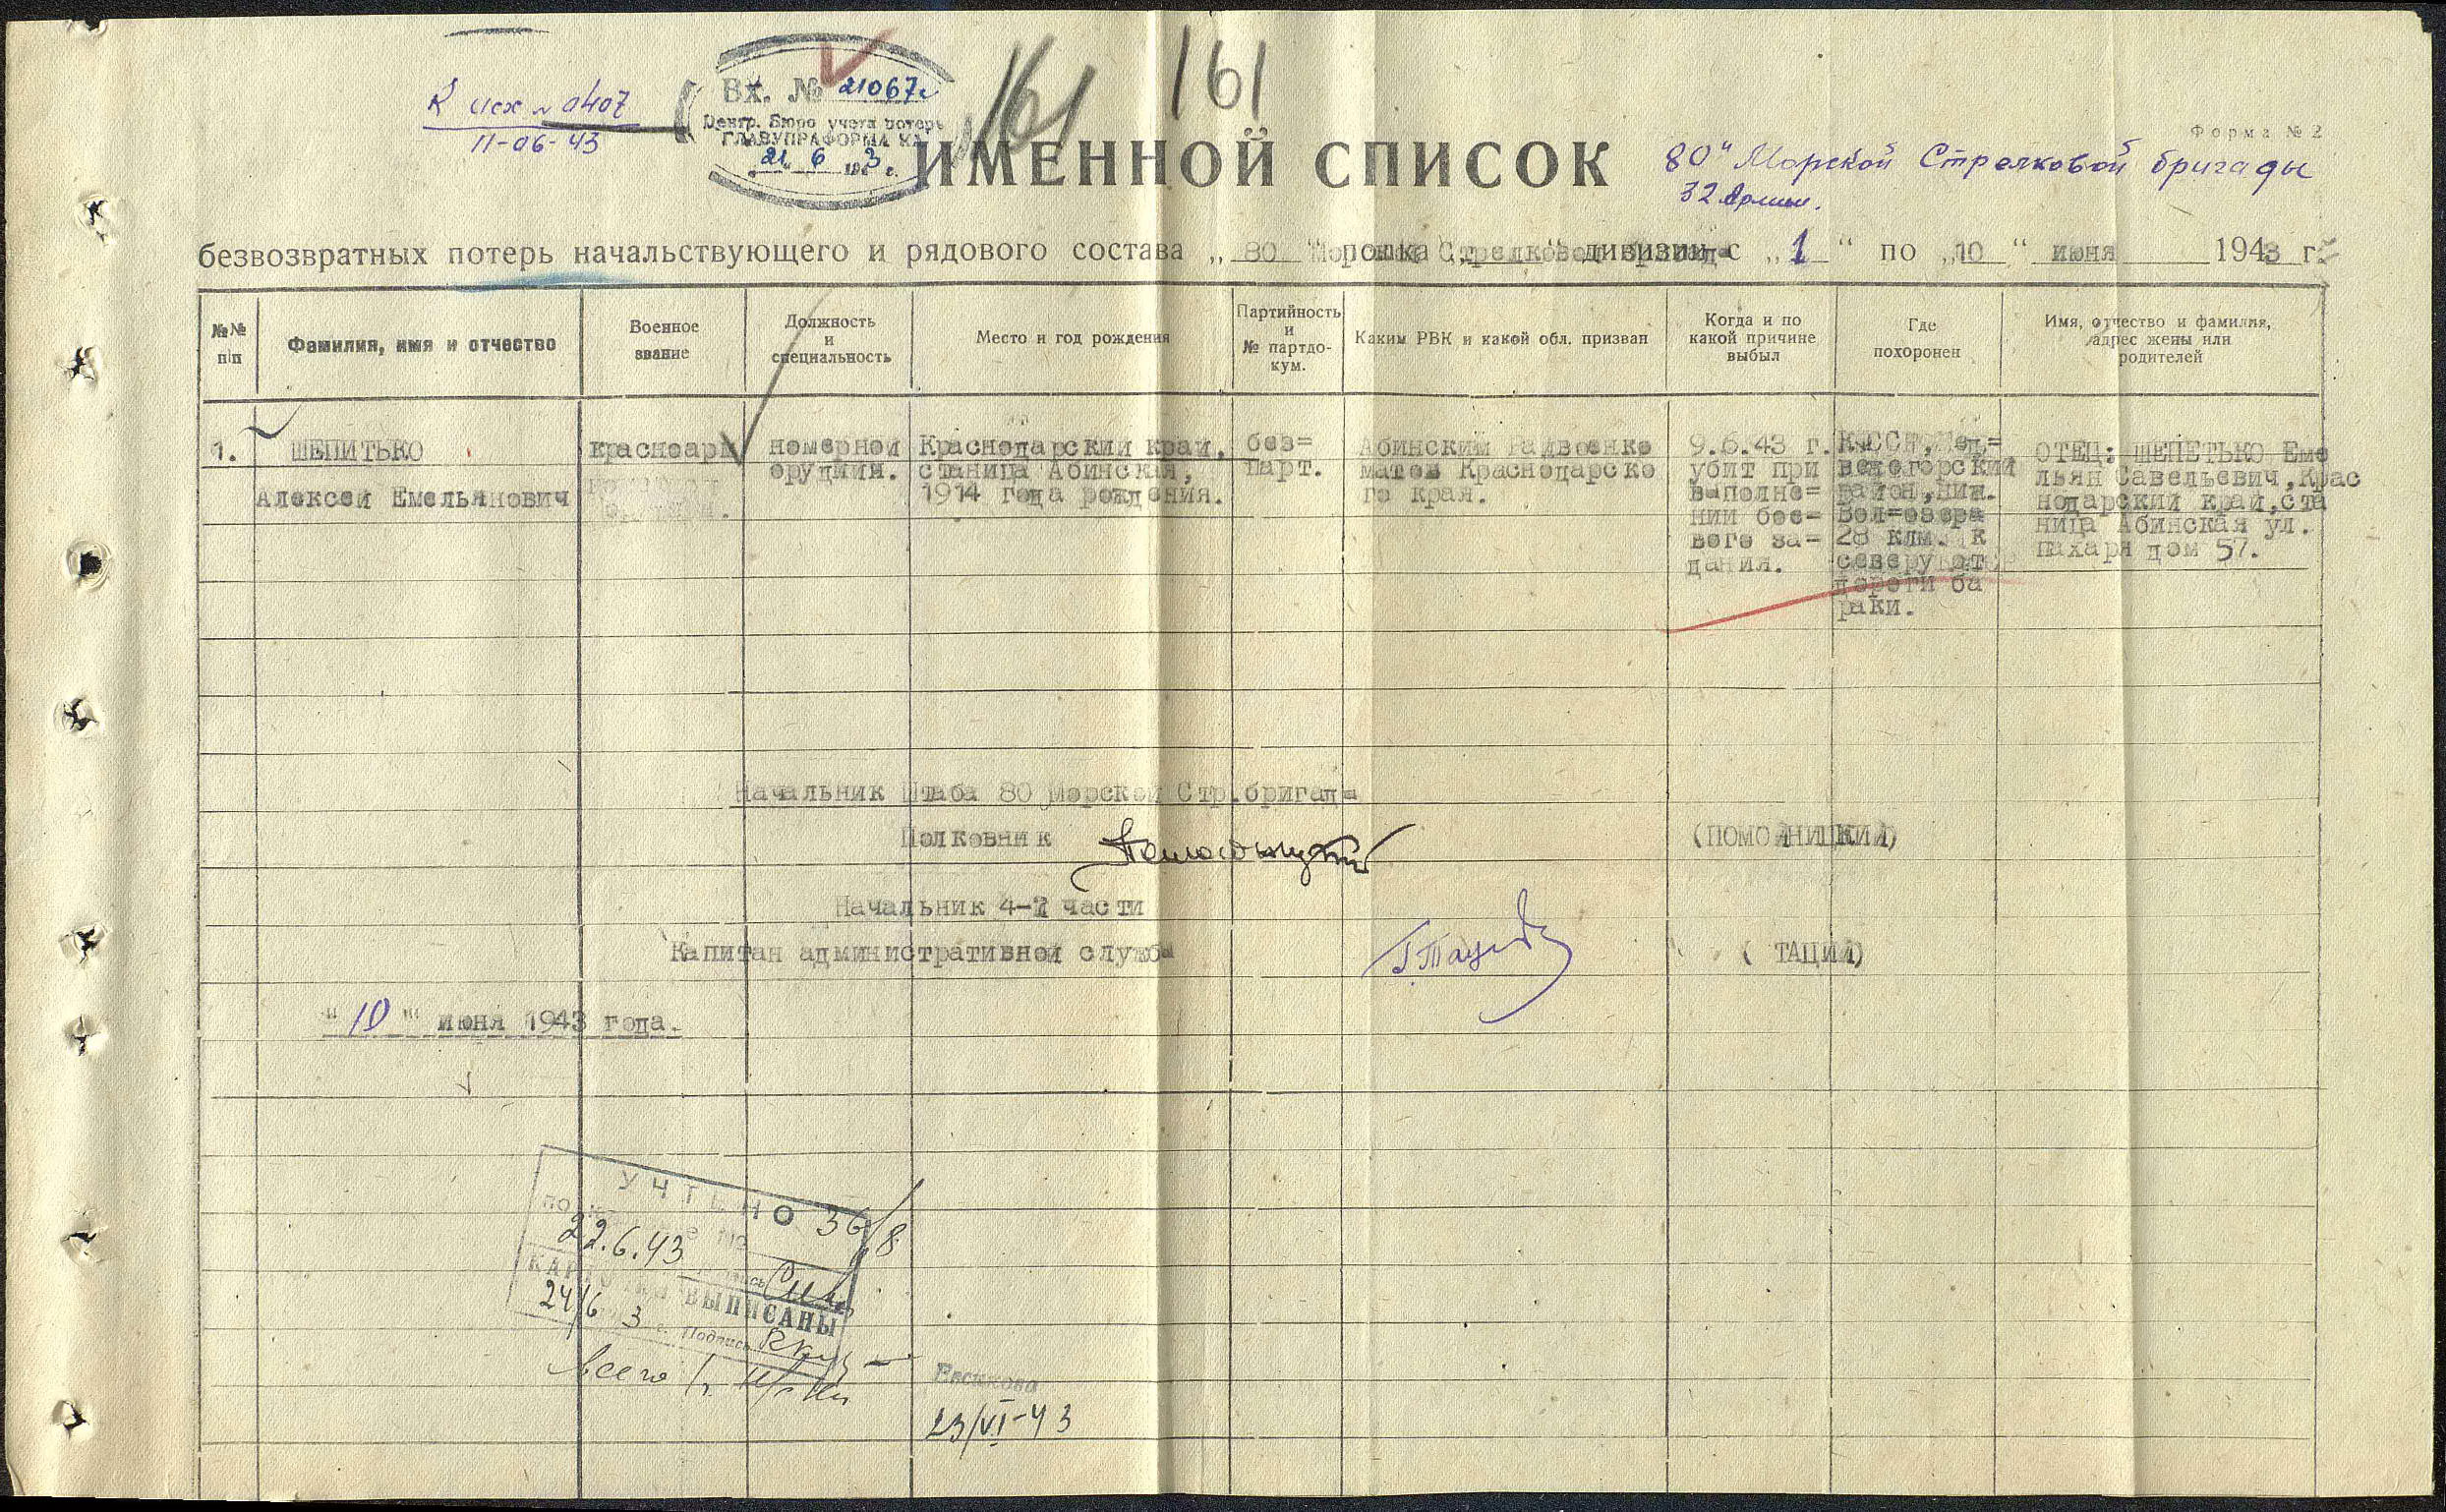 161
161
К исх № 0407
11-06-43
Вх. № 21067с
Центр. Бюро учета потерь
ГЛАВУПРАФОРМА КА
"21" 6 1943 г.
Форма № 2
ИМЕННОЙ СПИСОК
80й Морской Стрелковой бригады
32 Армии.
безвозвратных потерь начальствующего и рядового состава „ 80 Морской Стрелковой дивизии с „ 1 “ по „ 10 “ июня 1943 г.
№№ п/п
Фамилия, имя и отчество
Военное звание
Должность и специальность
Место и год рождения
Партийность и № партдо-кум.
Каким РВК и какой обл. призван
Когда и по какой причине выбыл
Где похоронен
Имя, отчество и фамилия, адрес жены или родителей
1.
ШЕПИТЬКО
Алексей Емельянович
красноарм
номерной
орудия.
Краснодарский край,
станица Абинская,
1914 года рождения.
без=
парт.
Абинским Райвоенко
матом Краснодарско
го края.
9.6.43 г.
убит при
выполне=
нии бое=
вого за=
дания.
КФССР, Мед=
вежегорский
район,
Вол=озера
28 клм. к
северу от
дороги ба
раки.
ОТЕЦ: ШЕПЕТЬКО Еме
льян Савельевич, Крас
нодарский край, ста
ница Абинская ул.
пахаря дом 57.
Начальник Штаба 80 Морской Стр.бригады
Полковник
(ПОМОЙНИЦКИЙ)
Начальник 4-й части
Капитан административной службы
( ТАЦИЙ)
" 10 " июня 1943 года.
УЧТЕНО 36/8
22.6.43
КАРТОЧКИ ВЫПИСАНЫ
24/6 3 г. Подпись
всего 1
Евсикова
23/VI-43